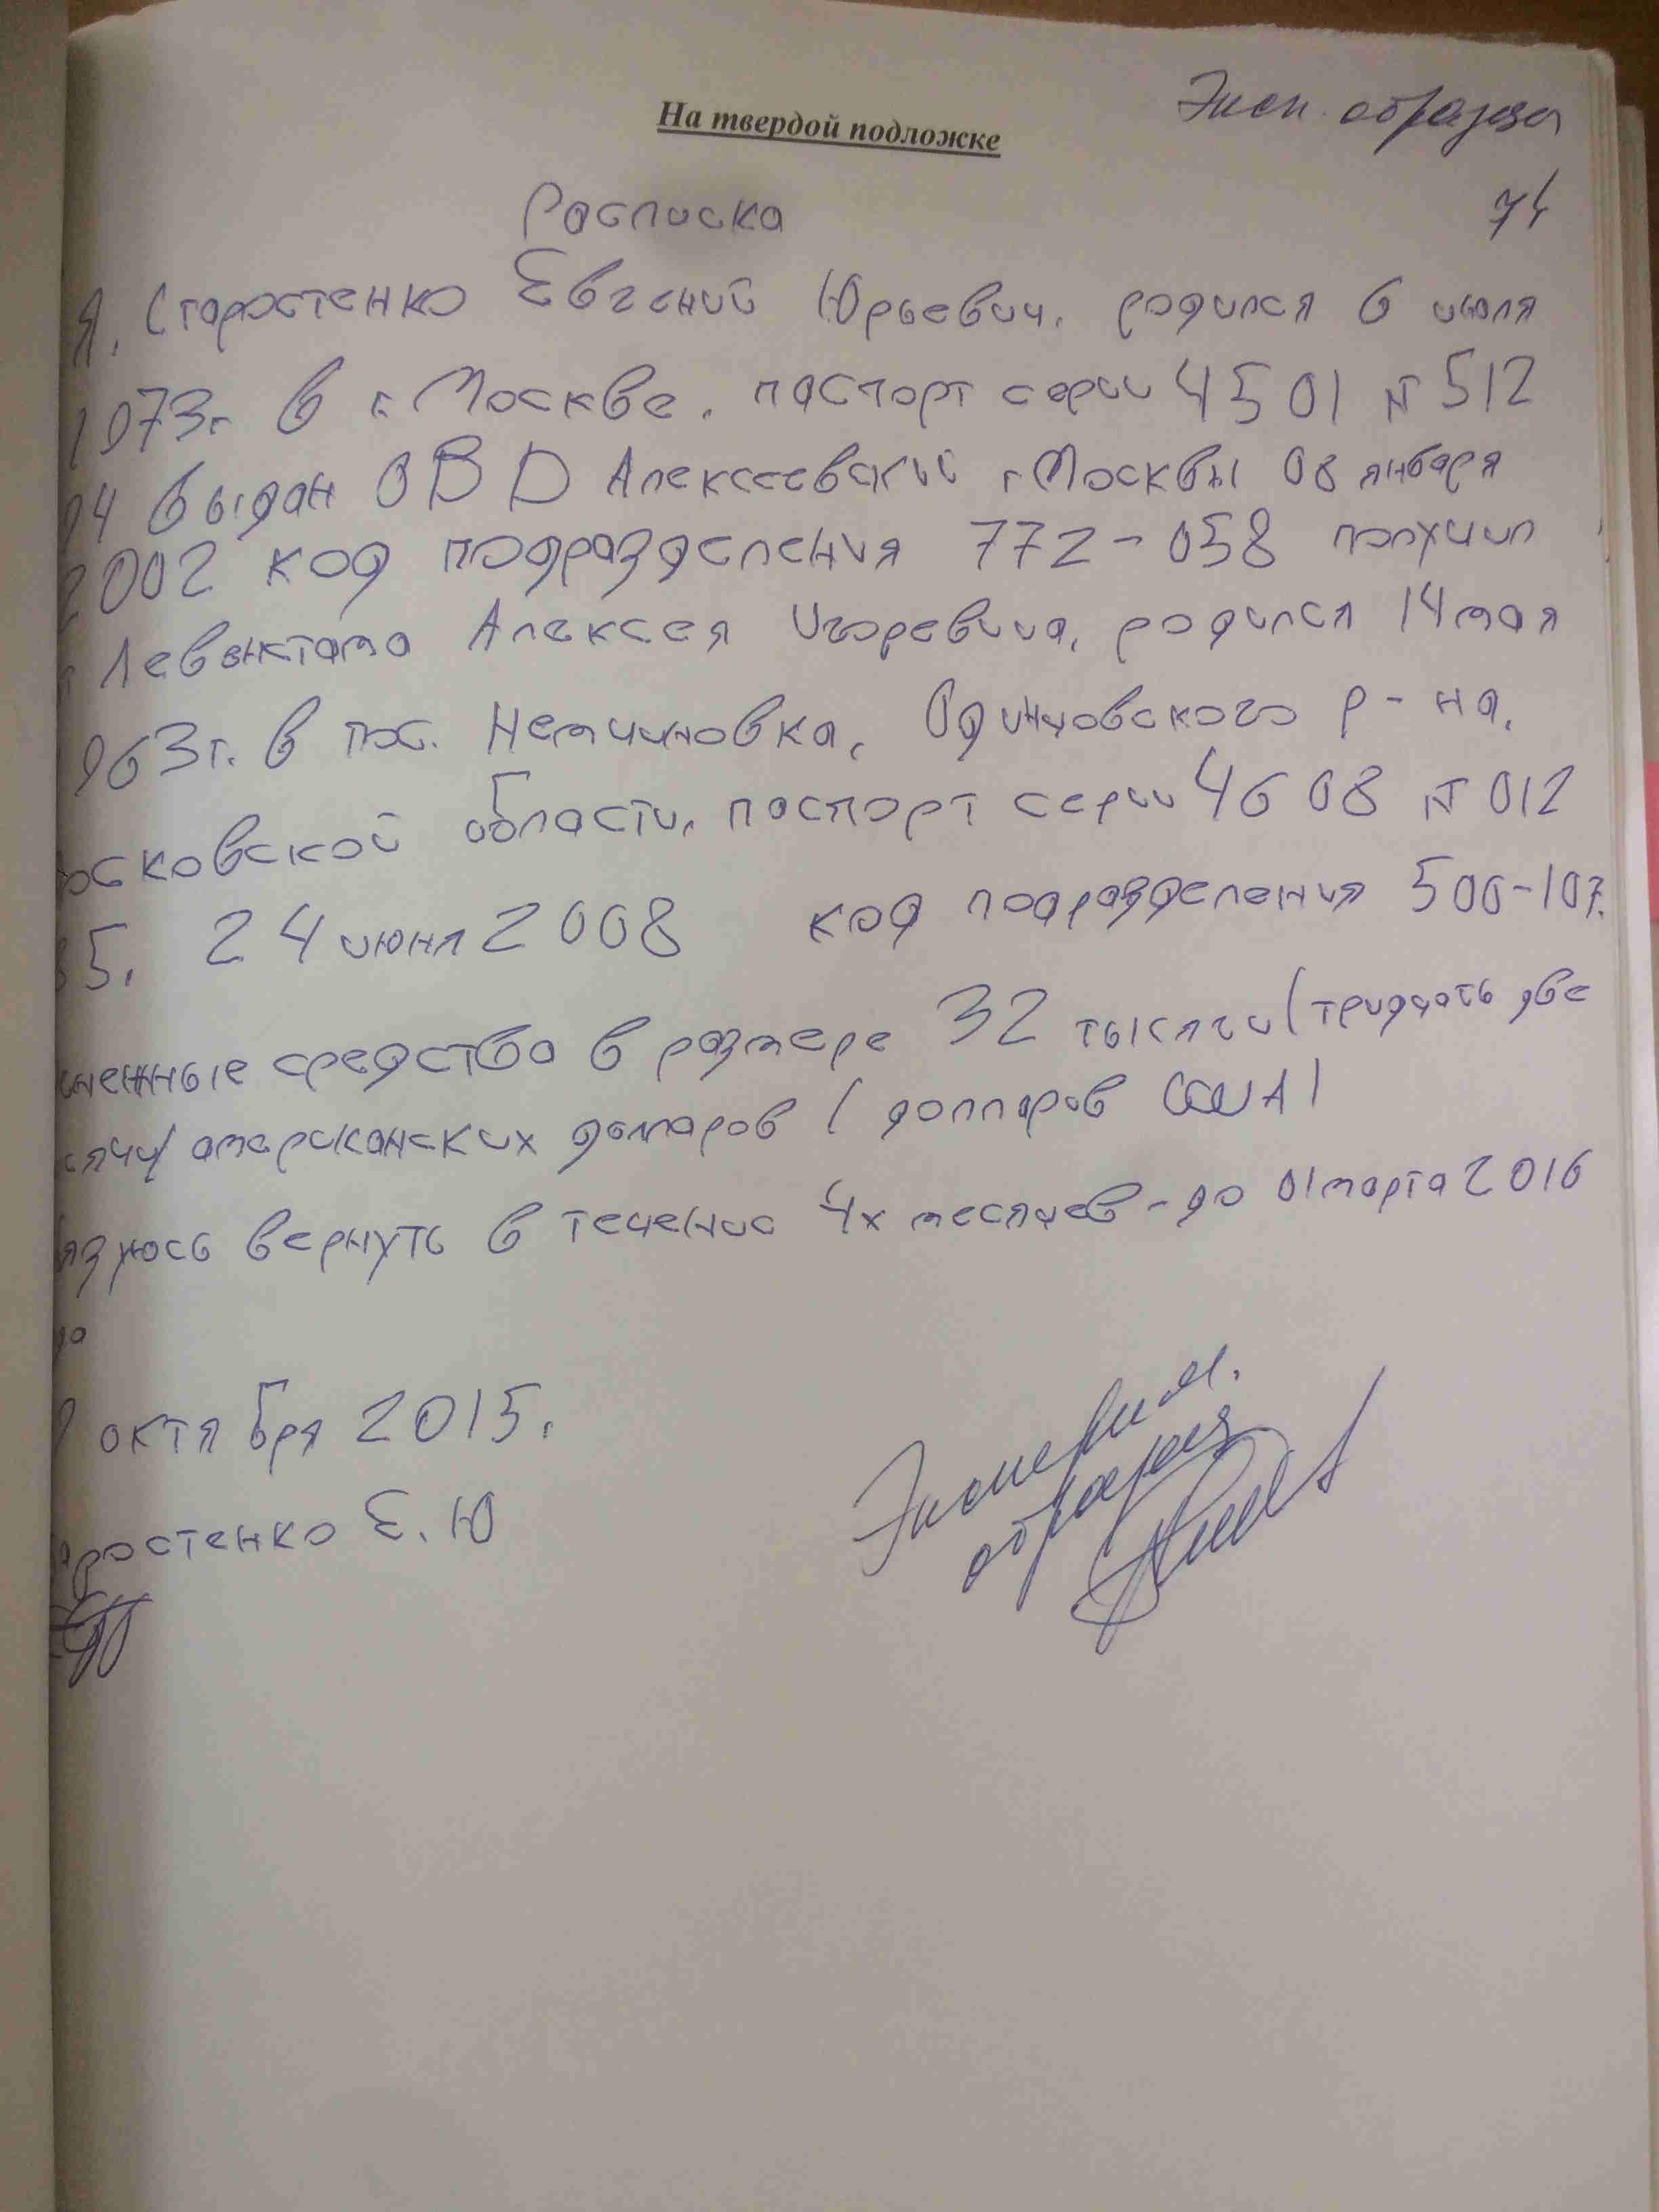 На твердой подложке
Эксп. образцы
74
Расписка
Я, Старостенко Евгений Юрьевич, родился 6 июля
1973г. в г. Москве, паспорт серии 4501 № 512
94 выдан ОВД Алексеевский г Москвы 08 января
2002 код подразделения 772-058 получил
Алексея Игоревича, родился 14 мая
963г. в пос. Немчиновка, Одинцовского р-на,
осковской области, паспорт серии 4608 № 012
35. 24 июня 2008 код подразделения 500-107.
енежные средства в размере 32 тысячи (тридцать две
сячи) американских долларов (долларов США)
язуюсь вернуть в течение 4х месяцев - до 01 марта 2016
да
октября 2015.
аростенко Е. Ю
Эксперим.
образец